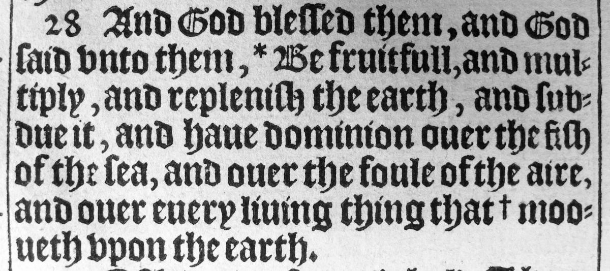 28 And God blessed them, and God
said vnto them, * Be fruitfull, and mul-
tiply, and replenish the earth, and sub-
due it, and haue dominion ouer the fish
of the sea, and ouer the foule of the aire,
and ouer euery liuing thing that † moo-
ueth vpon the earth.